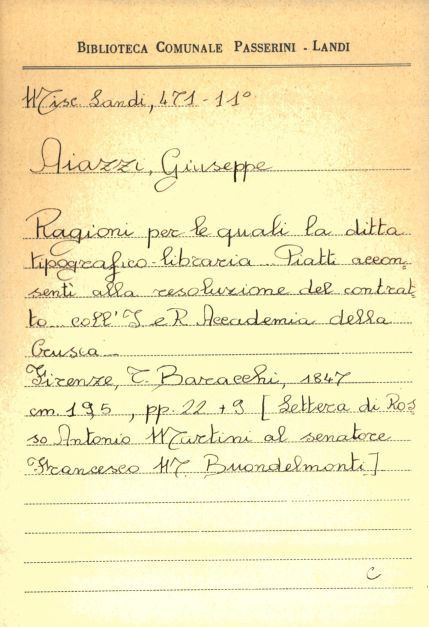 BIBLIOTECA COMUNALE PASSERINI - LANDI
Misc. Landi, 471 - 11º
Aiazzi, Giuseppe
Ragioni per le quali la ditta
tipografico-libraria Piatti accon-
sentì alla resoluzione del contrat-
to coll'I e R Accademia della
Crusca
Firenze, T. Baracchi, 1847
cm. 19,5, pp. 22 + 9 [Lettera di Ros
so Antonio Martini al senatore
Francesco M Buondelmonti].
C